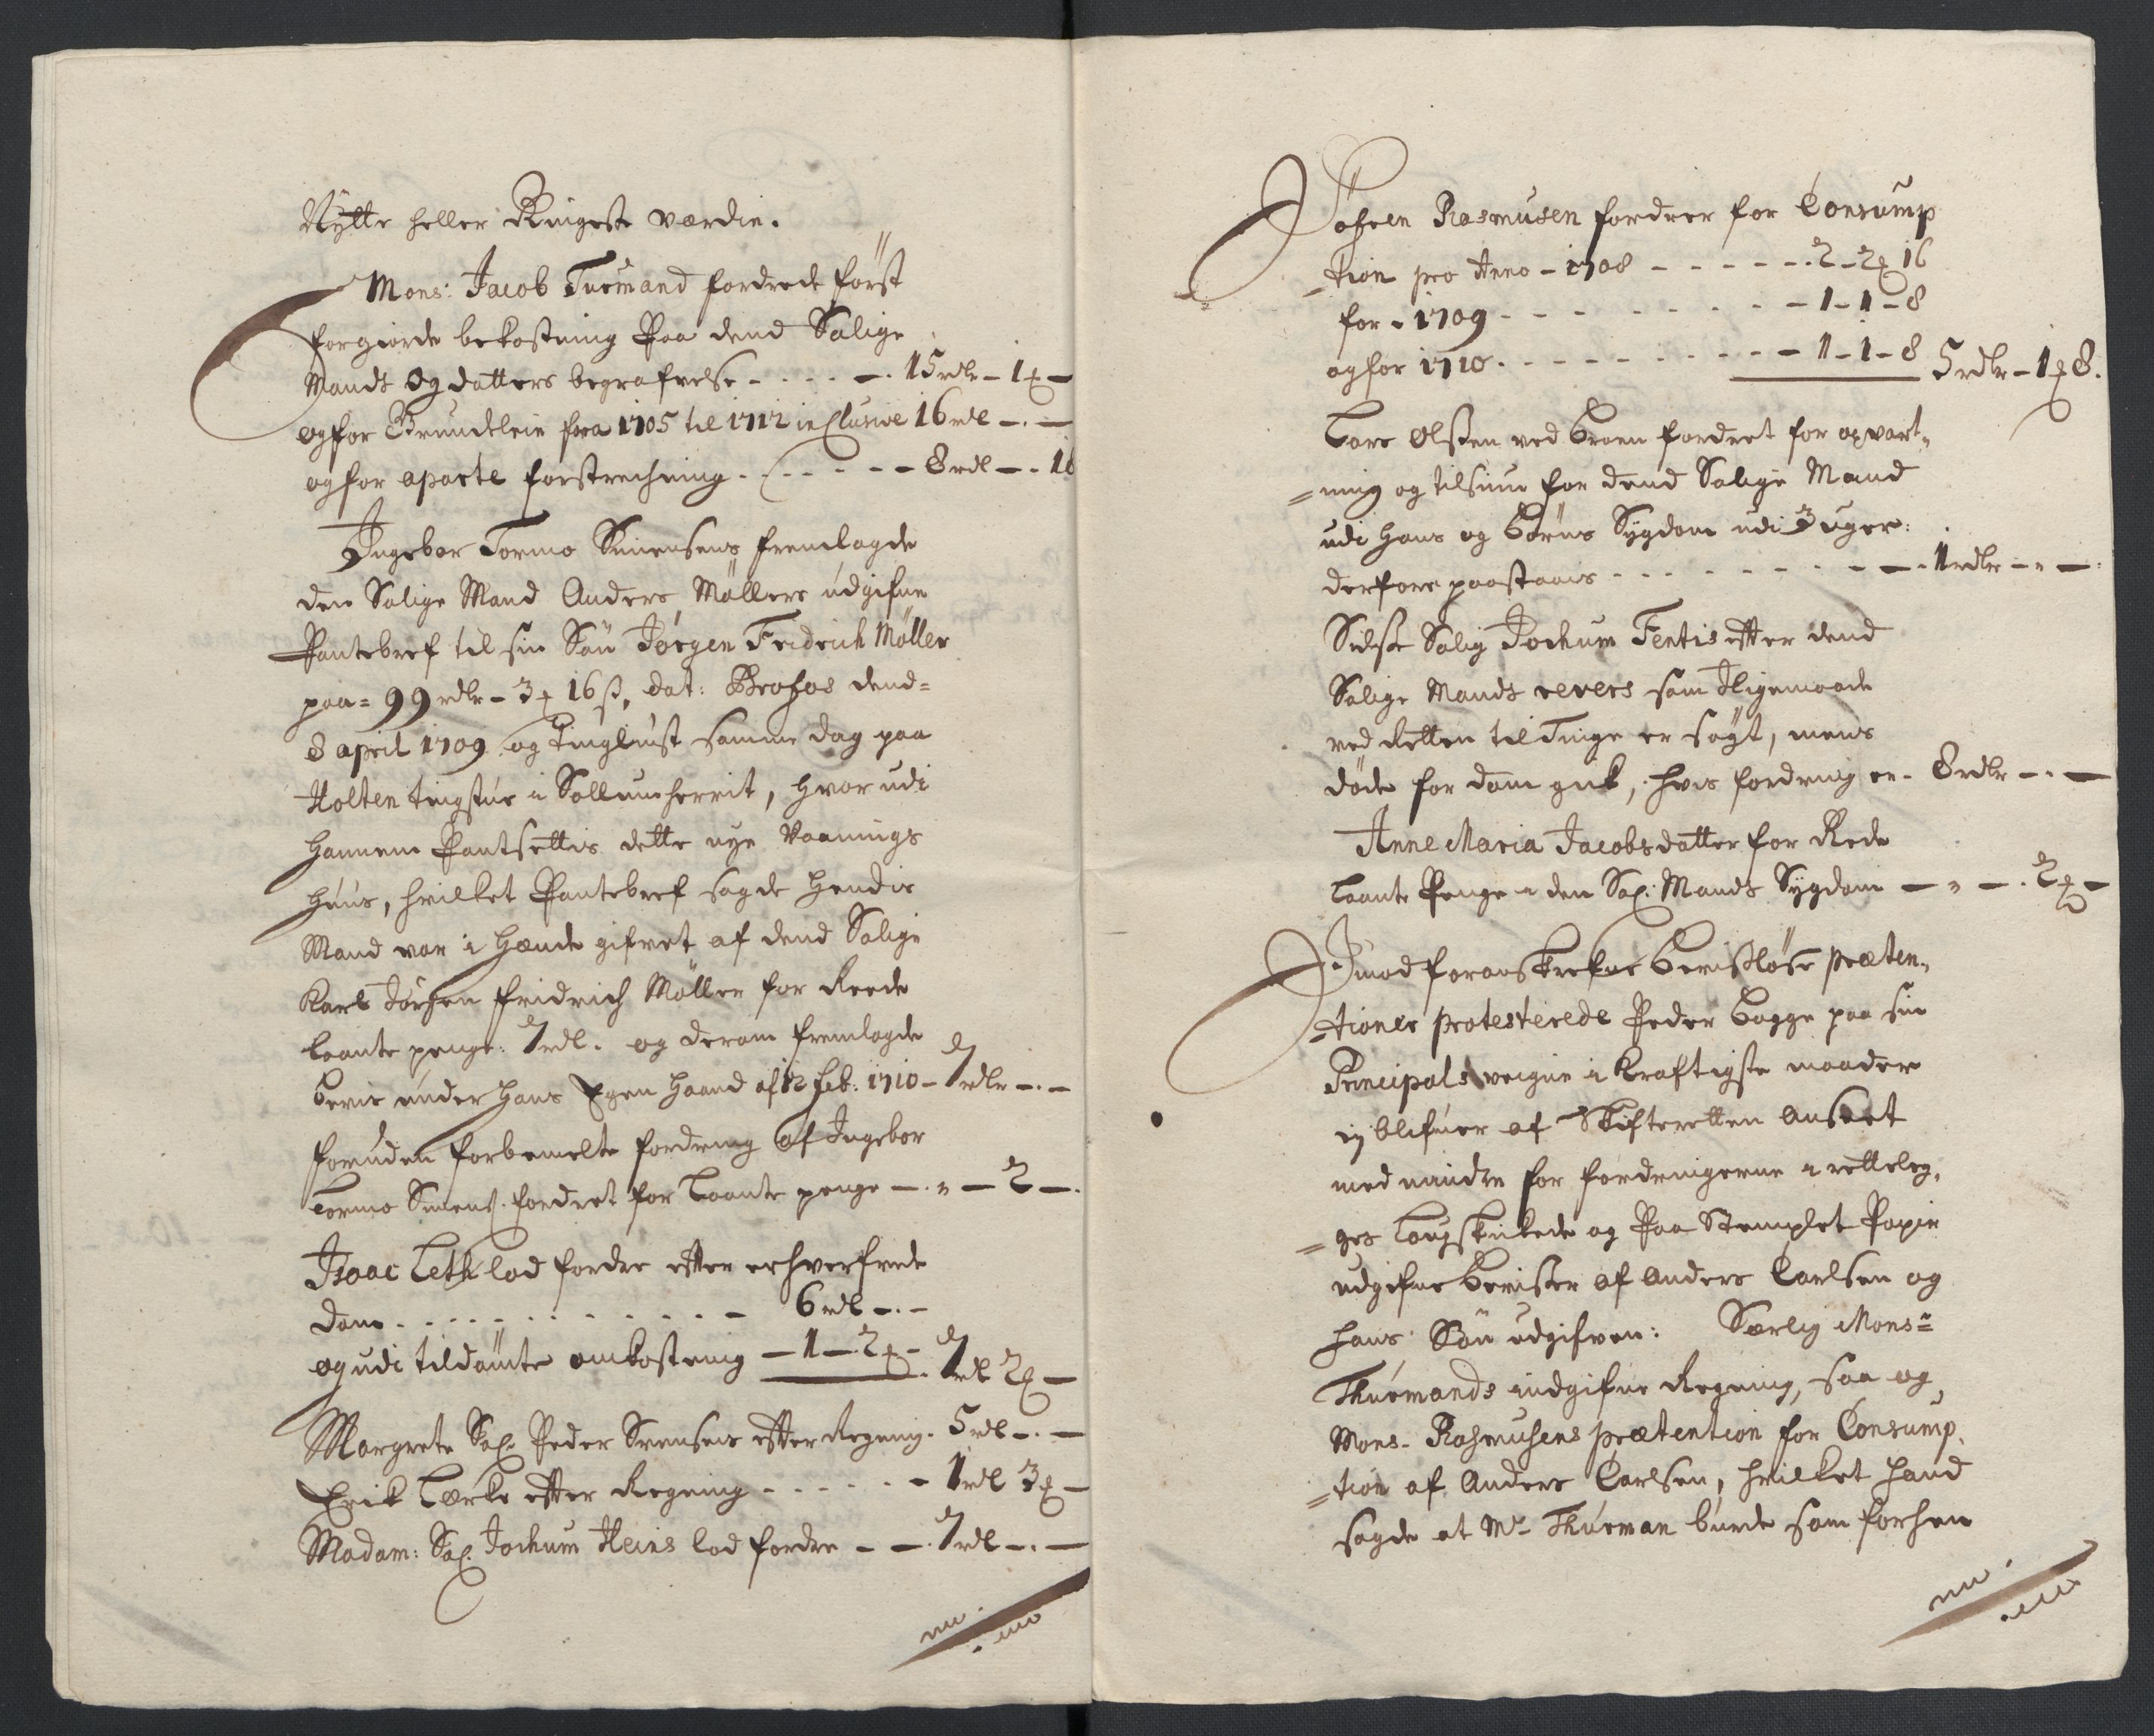 Nytte heller Ringeste værdie.
Mons: Jacob Turmand fordrede först
forgiorde bekostning Paa dend Salige
Mands og datters begrafvelse - - - - - 15 rdlr - 1 -
og for Grundleie fra 1705 til 1712 inclusive 16 rdl - . -
og for aparte forstrechning - - - - - 8 rdl - . 16
Ingebor Tormo Simensens fremlagde
den Salige Mand Anders Møllers udgifne
Pantebref til sin Sön Jörgen Fridrich Möller
paa = 99 rdlr - 3 16 ß, dat: Brohos dend =
8 april 1709 og Tinglyst samme dag paa
Holten tingstue i Sollum herrit, hvor udi
hannem Pantsettis dette nye Vaanings
huus, hvilket Pantebref sagde hendis
Mand var i hænde gifvet af dend Salige
Karl Jörgen fridrich Möller for Reede
laante penge: 7 rdl. og derom fremlagde
bevis under hans Egen haand af 12 feb: 1710 - 7 rdlr - . -
foruden forbemelte fordring af Ingebor
Tormo Simens. fordret for Laante penge - . " - 2 - .
Isaac Leth lod fordre efter erhverfvede
dom - - - - - - - - - - 6 rdl - . -
og udi tildömte omkostning - 1 - 2 - . 7 rdl 2 -
Margrete Sal. Peder Svensens efter Regning. 5 rdl - . -
Erik Lærke efter Regning - - - - - - 1 rdl 3 -
Madam: Sal. Jochum Heins lod fordre - - . 7 rdl - . -
Jöhsen Rasmusen fordrer for Consump
-tion pro Anno - 1708 - - - - - - 2 - 2 16
for - 1709 - - - - - - - - 1 - 1 - 8
og for 1710 - - - - - - - - 1 - 1 - 8 5 rdlr - 1 8.
Lars Olssen ved Broen fordret for opvart-
=ning og tilsiun for dend Salige Mand
udi hans og Börns Sygdom udi 3 uger:
derfore paastaais - - - - - - - - 1 rdlr - " - .
Sidse Salig Jochum Fentis efter dend
Salige Mands revers som Iligemaade
ved Retten til Tinge er sögt, mens
döde for dom gik, hvis fordring er - 8 rdlr - . -
Anne Maria Jacobsdatter for Rede
laante Penge i den Sal: Mands Sygdom - " - . 2 -
Imod foranskrefne Bevislöse præten-
-tioner protesterede Peder Bagge paa sin
Principals veigne i Kraftigste maader
ej blifver af Skifteretten Anseet
med mindre for fordringerne i retteleg-
=ges laugskikkede og Paa Stemplet Papir
udgifne Beviser af Anders Carlsen og
hans Sön udgifven: Særlig Monsr
Thurmands indgifne Regning, saa og
Mons. Rasmusens prætention for Consump-
=tion af Anders Carlsen, hvilket hand
sagde at Mr Thurman burde som forhen